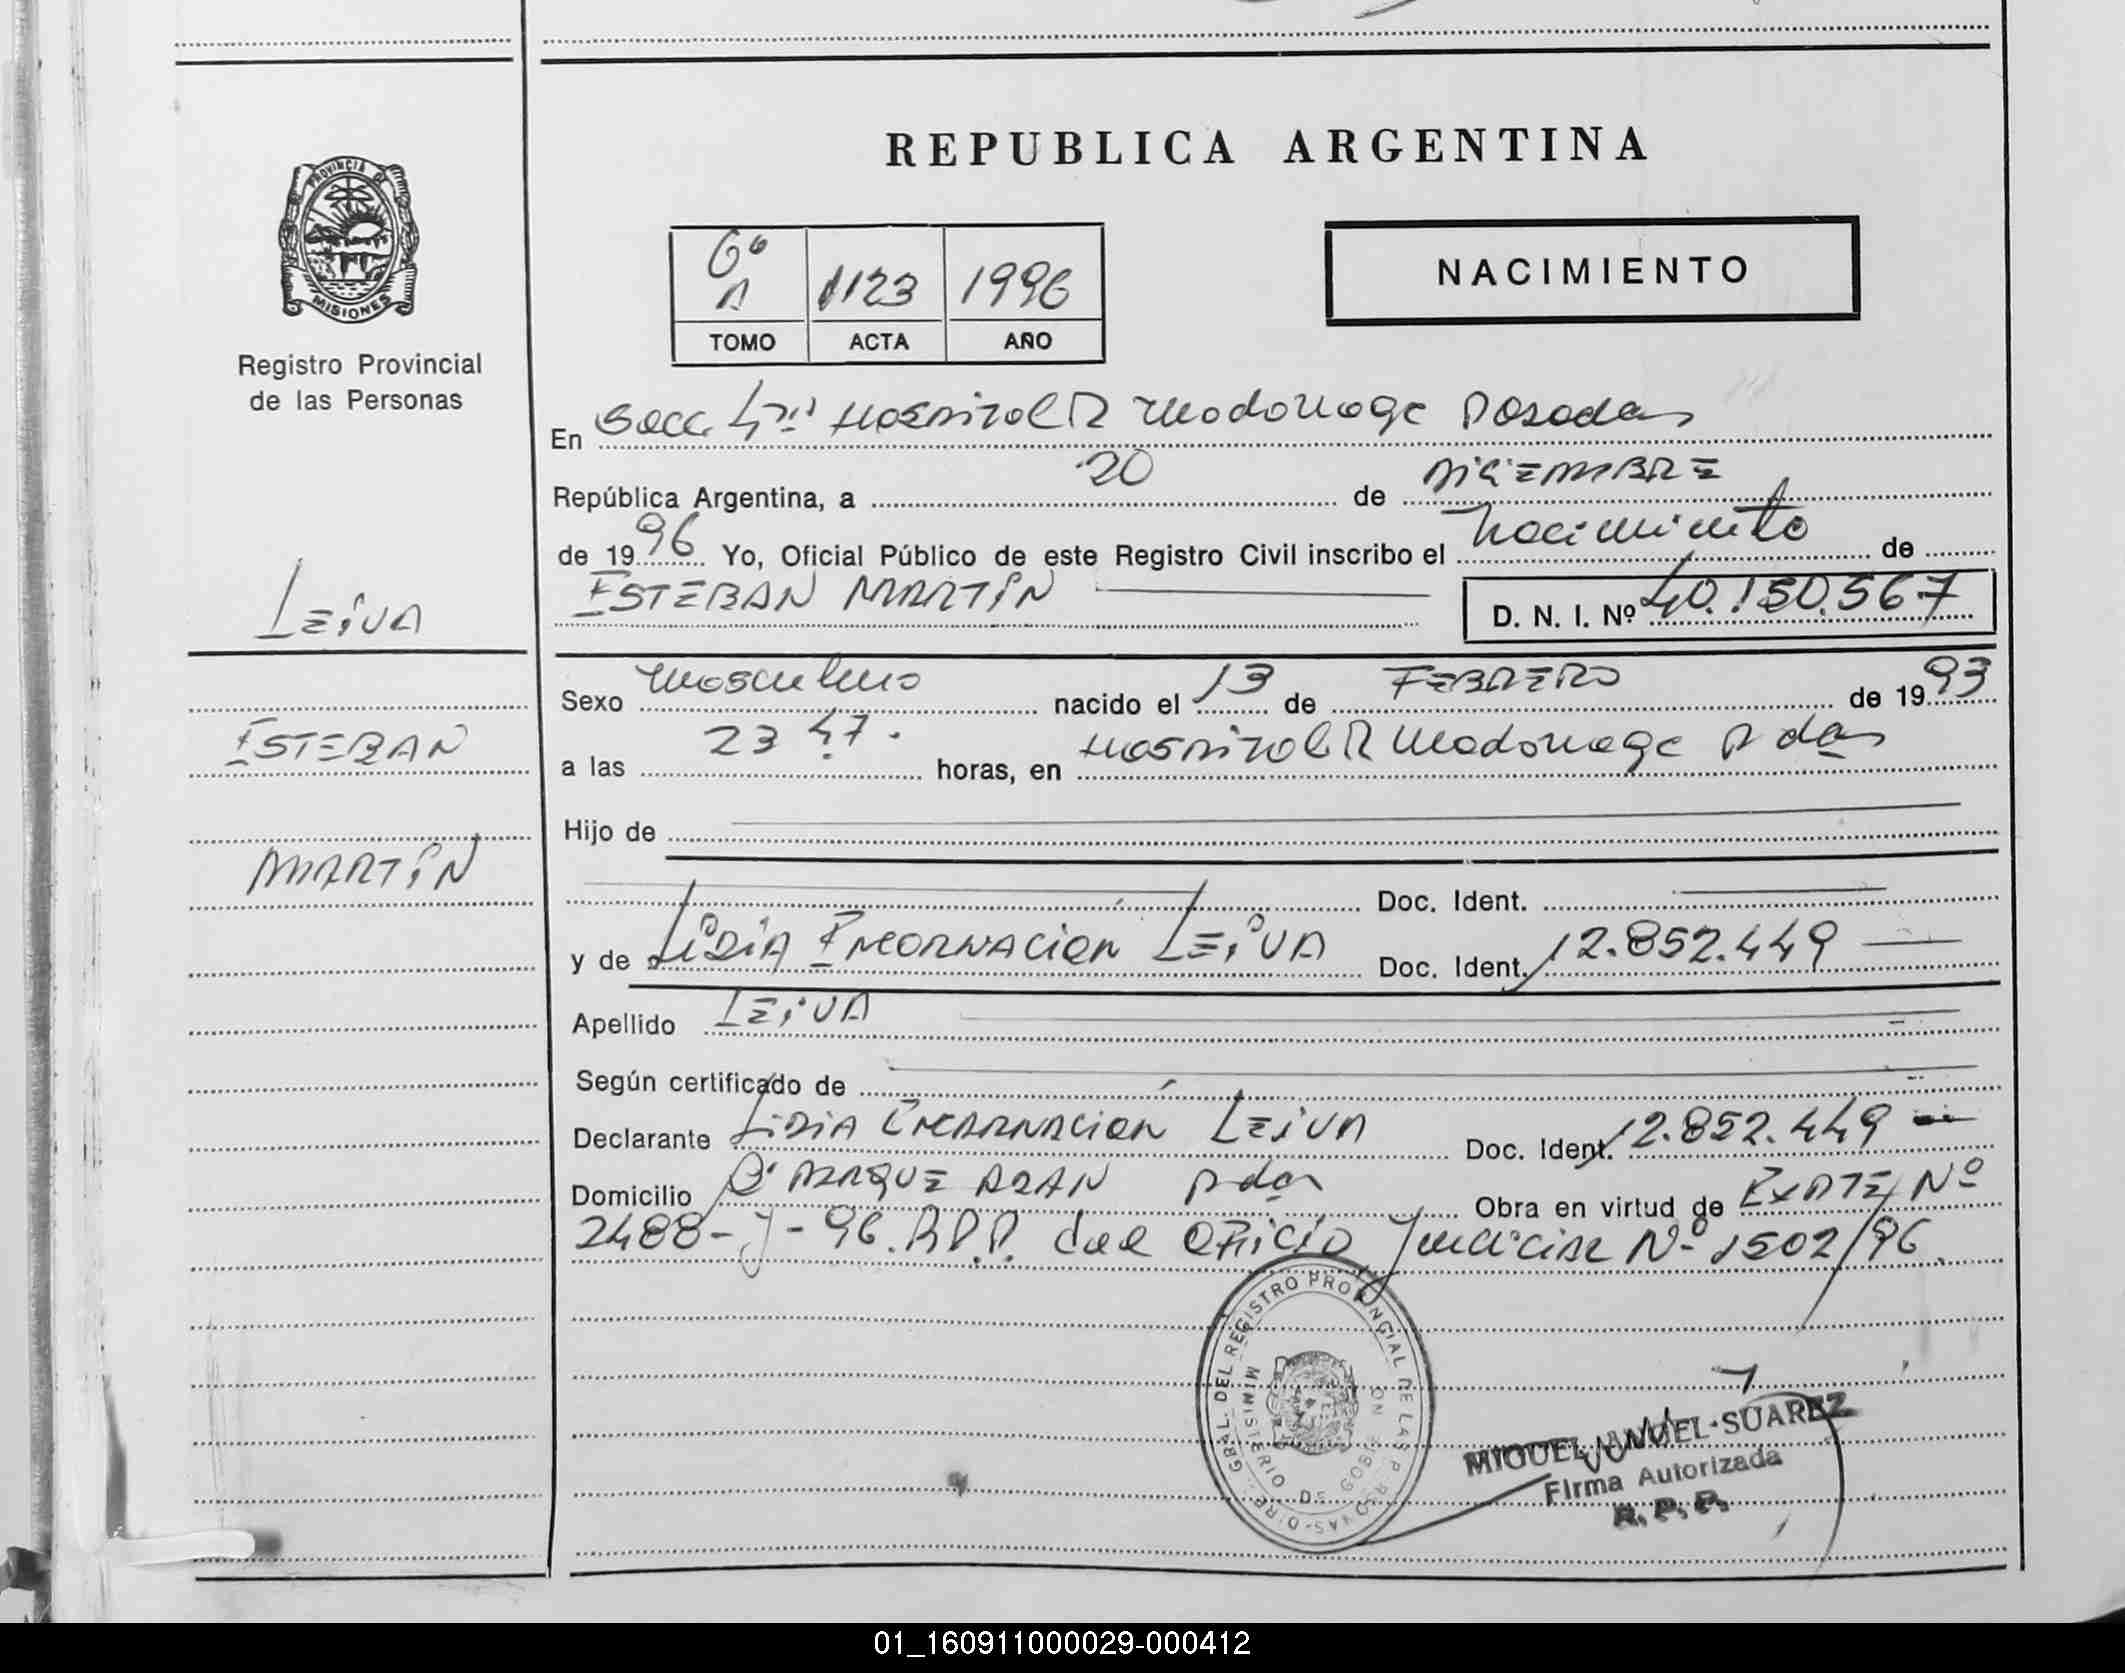 REPUBLICA ARGENTINA
PROVINCIA DE
MISIONES
Registro Provincial
de las Personas
6º
A 1123 1996
TOMO ACTA AÑO
NACIMIENTO
En Secc. 4ta Hospital R Madariaga Posadas
República Argentina, a 20 de DICIEMBRE
de 1996 Yo, Oficial Público de este Registro Civil inscribo el nacimiento de
ESTEBAN MARTIN D. N. I. Nº 40.150.567
LEIVA
ESTEBAN
MARTIN
Sexo masculino nacido el 13 de FEBRERO de 1993
a las 23 47. horas, en Hospital R Madariaga Pdas
Hijo de
Doc. Ident.
y de LIDIA ENCARNACION LEIVA Doc. Ident. 12.852.449
Apellido LEIVA
Según certificado de
Declarante LIDIA ENCARNACION LEIVA Doc. Ident. 12.852.449
Domicilio Bº PARQUE ADAN Pdas Obra en virtud de EXPTE Nº
2488-J-96.R.P.P. del OFICIO Judicial Nº 1502/96.
DIRE. GRAL. DEL REGISTRO PROVINCIAL DE LAS PERSONAS
MINISTERIO DE GOBIERNO
MIGUEL SUAREZ
Firma Autorizada
R. P. P.
01_160911000029-000412